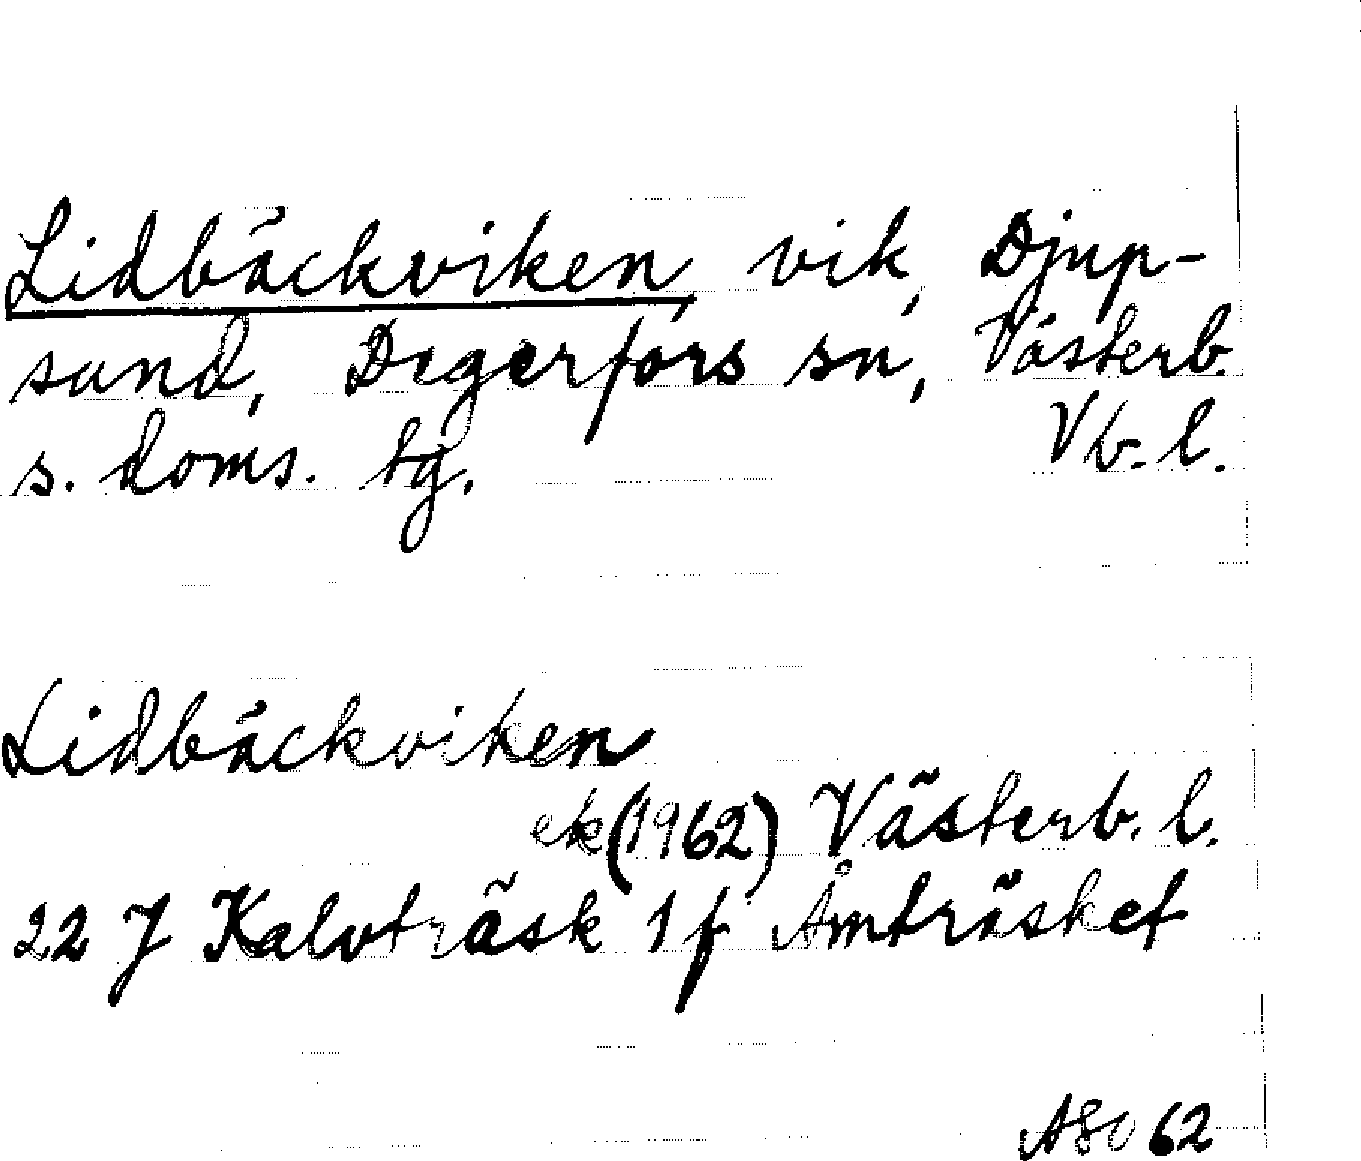 Lidbäckviken, vik, Djup-
sund, Degerfors sn, Västerb.
s. doms. tg. Vb. l.
Lidbäckviken
ek (1962) Västerb. l.
22 J Kalvträsk 1 f Åmträsket
ASO 62